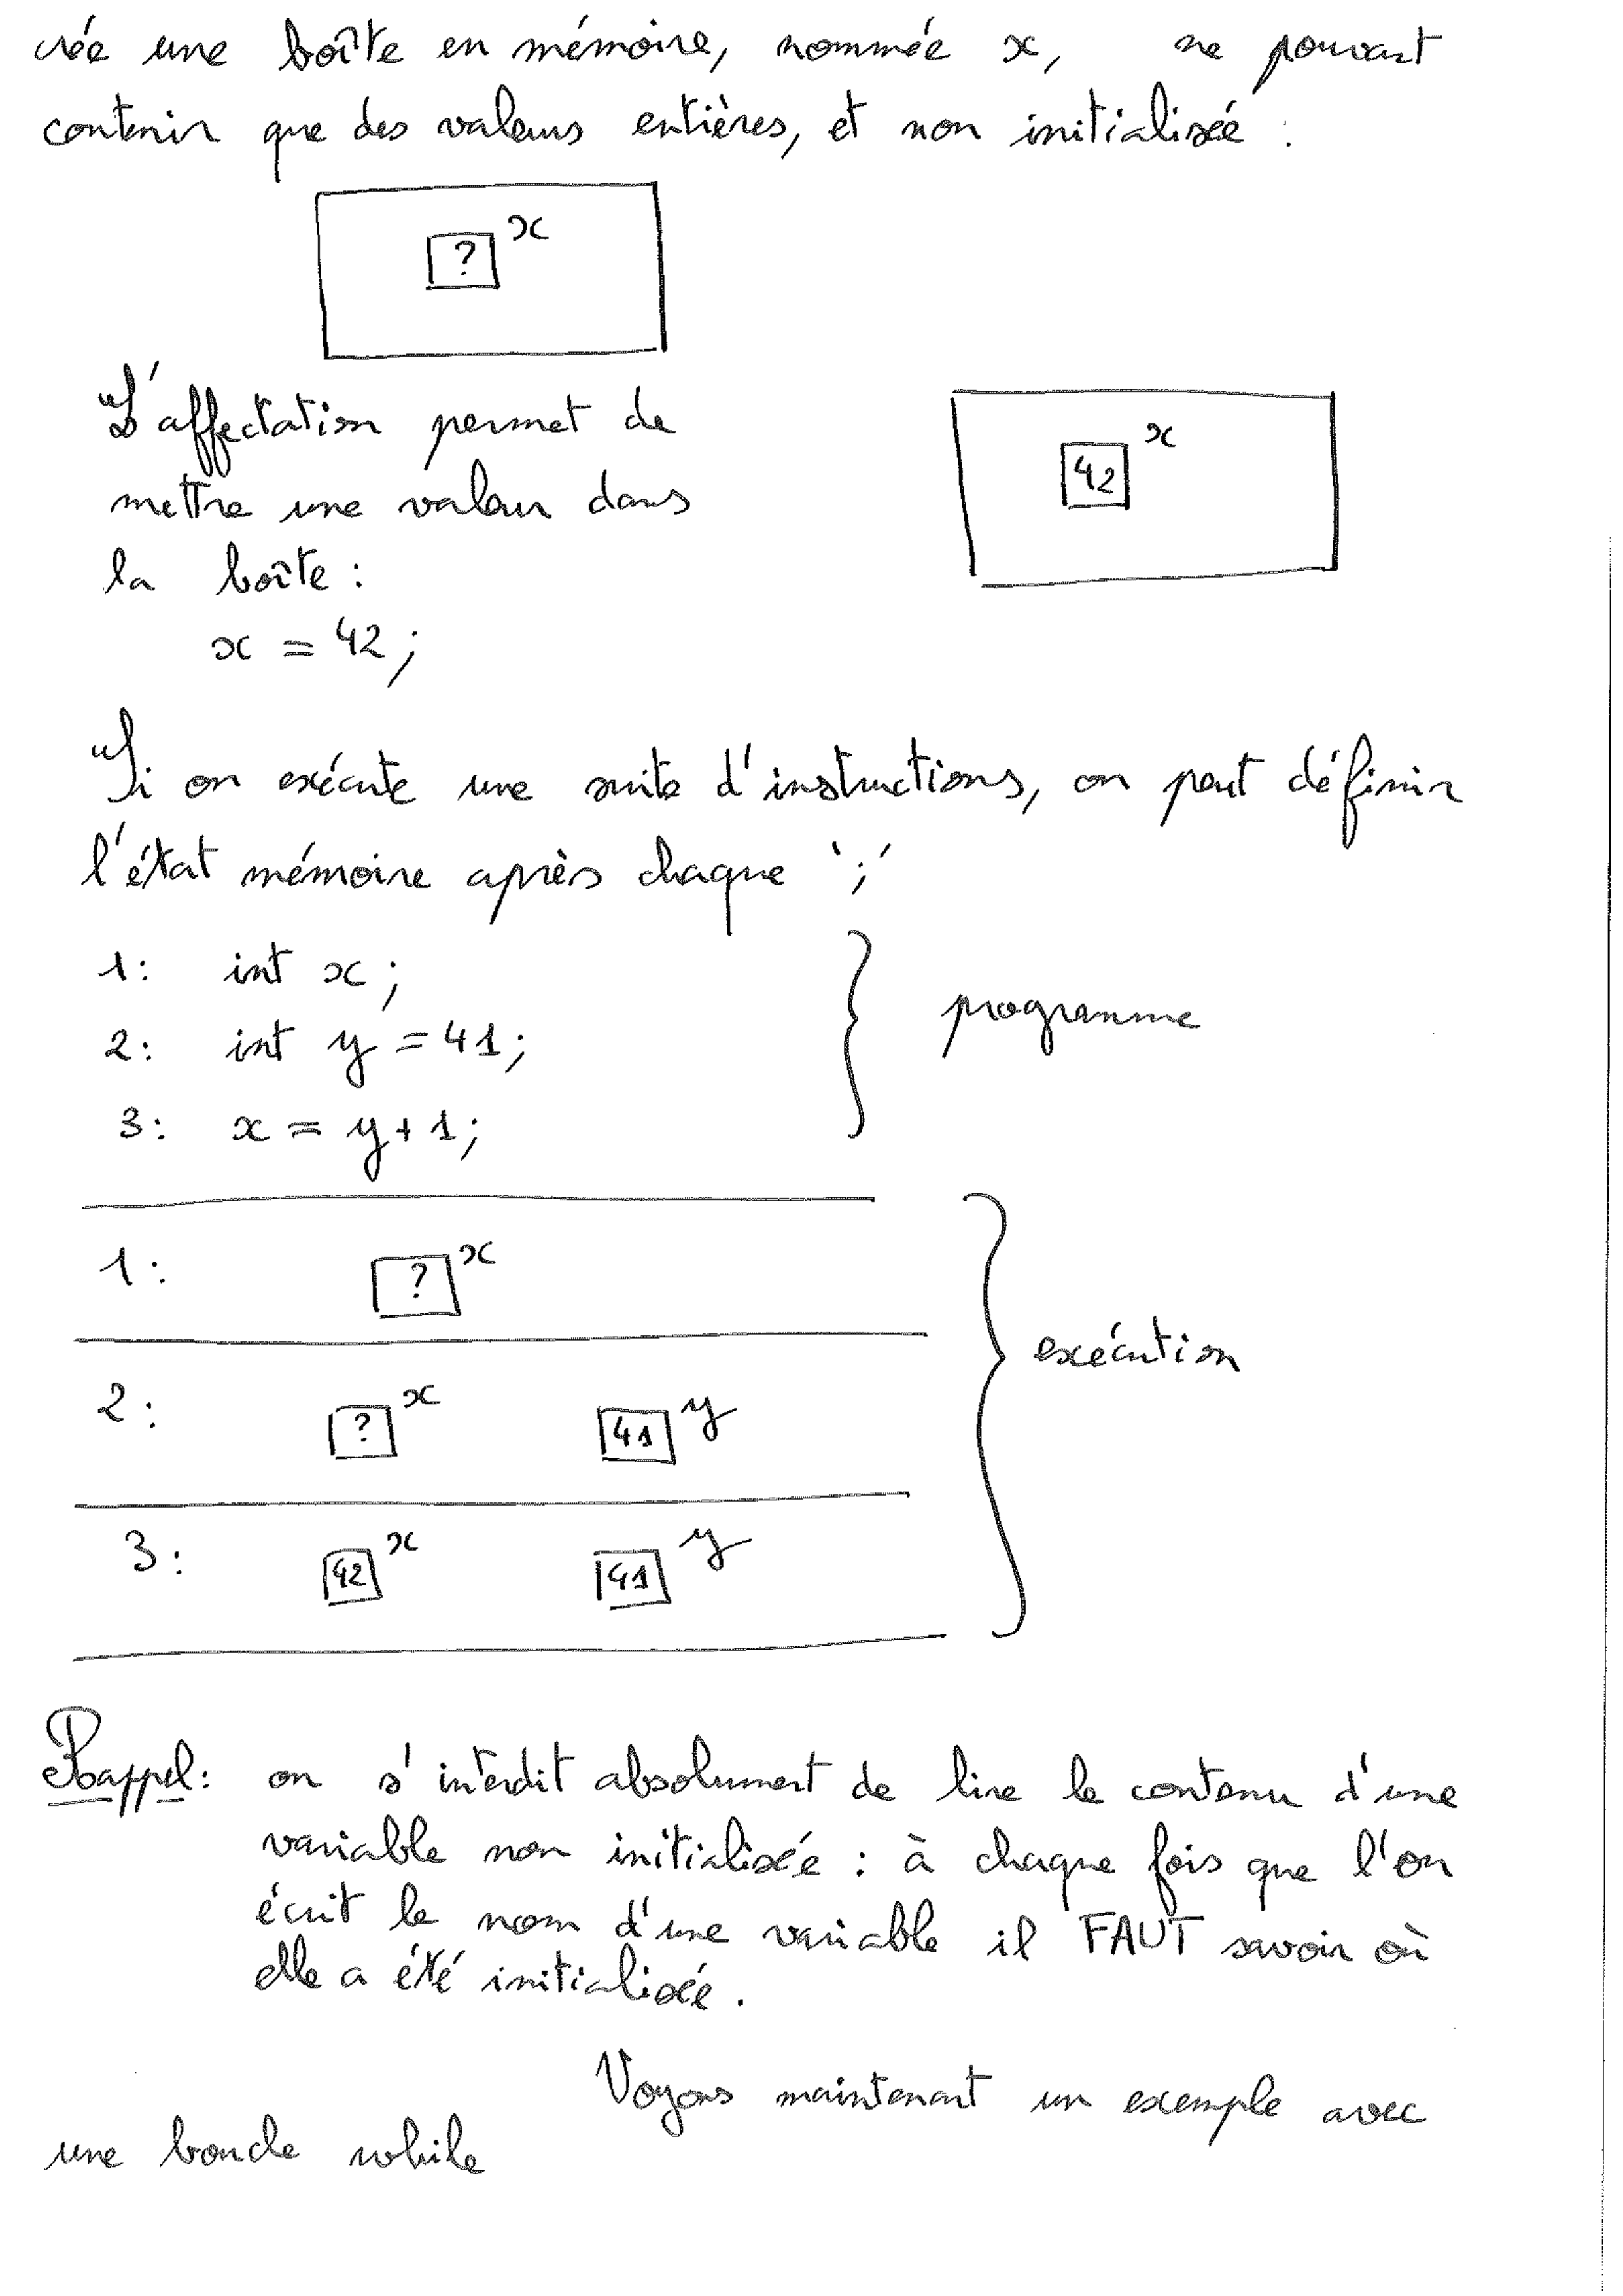 crée une boîte en mémoire, nommée x, ne pouvant
contenir que des valeurs entières, et non initialisée :
? x
L'affectation permet de
mettre une valeur dans
la boîte :
x = 42 ;
42 x
Si on exécute une suite d'instructions, on peut définir
l'état mémoire après chaque ';'
1: int x ;
2: int y = 41 ;
3: x = y + 1 ;
programme
1: ? x
2: ? x 41 y
3: 42 x 41 y
exécution
Rappel : on s'interdit absolument de lire le contenu d'une
variable non initialisée : à chaque fois que l'on
écrit le nom d'une variable il FAUT savoir où
elle a été initialisée.
Voyons maintenant un exemple avec
une boucle while